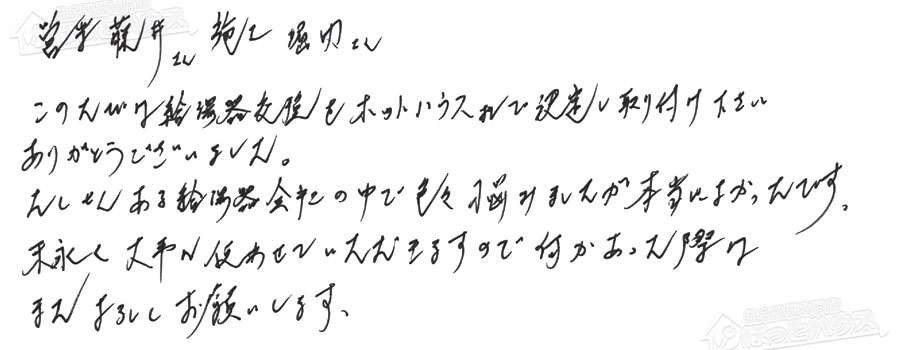 営業 藤井さん 施工 堀内さん
このたびは給湯器交換をホットハウスさんで設定し取り付け下さい
ありがとうございました。
たくさんある給湯器会社の中で色々悩みましたが本当によかったです。
末永く大事に使わせていただきますので何かあった際は
またよろしくお願いします。
ほっとハウス